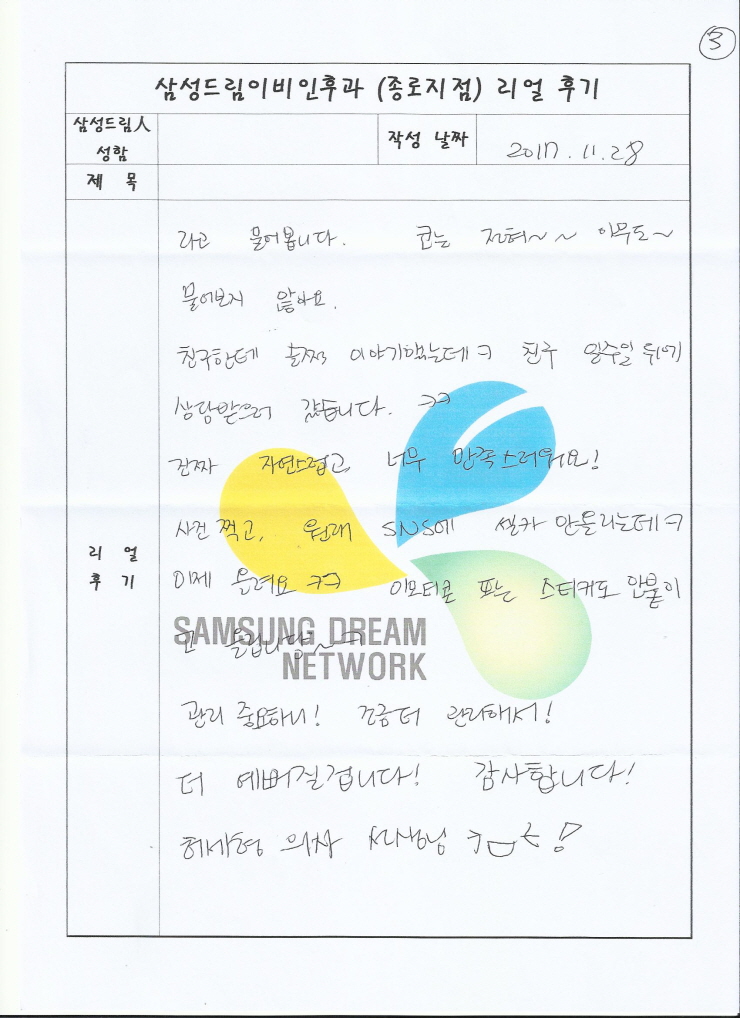 3
삼성드림이비인후과 (종로지점) 리얼 후기
삼성드림人
성함
작성 날짜
2017.11.28
제 목
라고 물어봅니다. 코는 전혀~~ 아무도~
물어보지 않아요.
친구한테 슬쩍 이야기했는데ㅋ 친구 일주일 뒤에
상담받으러 갔습니다. ㅋㅋ
진짜 자연스럽고 너무 만족스러워요!
사진 찍고, 원래 SNS에 셀카 안올리는데ㅋ
이제 올려요 ㅋㅋ 이모티콘 또는 스티커도 안붙이
고 올립니당~ㅋ
SAMSUNG DREAM
NETWORK
리 얼
후 기
관리 중요하니! 조금더 관리해서!
더 예뻐질겁니다! 감사합니다!
의사 선생님